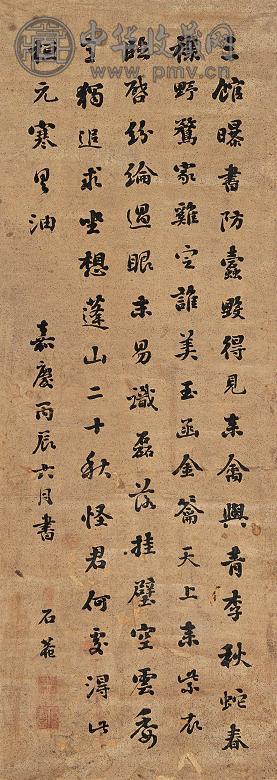 中华收藏网
www.pmv.cn
三館曝書防蠹毀得見來禽與青李秋蛇春
襍野鶩家雞定誰美玉函金籥天上來紫衣
臨啓紛綸過眼未易識磊落挂壁空雲委
獨追求坐想蓬山二十秋怪君何處得此
桓元寒具油
嘉慶丙辰六月書
石菴